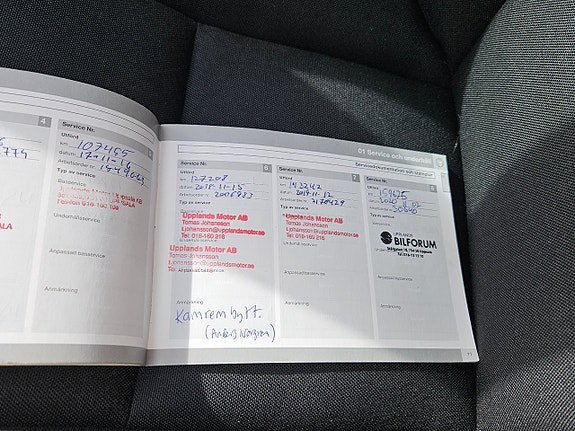 4
Service Nr. 5
Utförd
km 107455
datum 17-11-16
Arbetsorder nr
Typ av service
Underhållsservice
Anpassad basservice
Anmärkning
01 Service och underhåll
Servicedokumentation och stämplar
Service Nr. 6
Utförd
km 127208
datum 2018-11-15
Arbetsorder nr
Typ av service
Upplands Motor AB
Tomas Johansson
t.johansson@upplandsmotor.se
Tel: 018-160 216
Upplands Motor AB
Tomas Johansson
t.johansson@upplandsmotor.se
Anpassad basservice
Anmärkning
Kamrem bytt.
Service Nr. 7
Utförd
km 143242
datum 2019-11-12
Arbetsorder nr 2170429
Typ av service
Upplands Motor AB
Tomas Johansson
t.johansson@upplandsmotor.se
Tel: 018-160 216
Underhållsservice
Anpassad basservice
Anmärkning
Service Nr. 8
Utförd
km
datum
Arbetsorder nr
Typ av service
UPPLANDS
BILFORUM
Anpassad basservice
Anmärkning
77